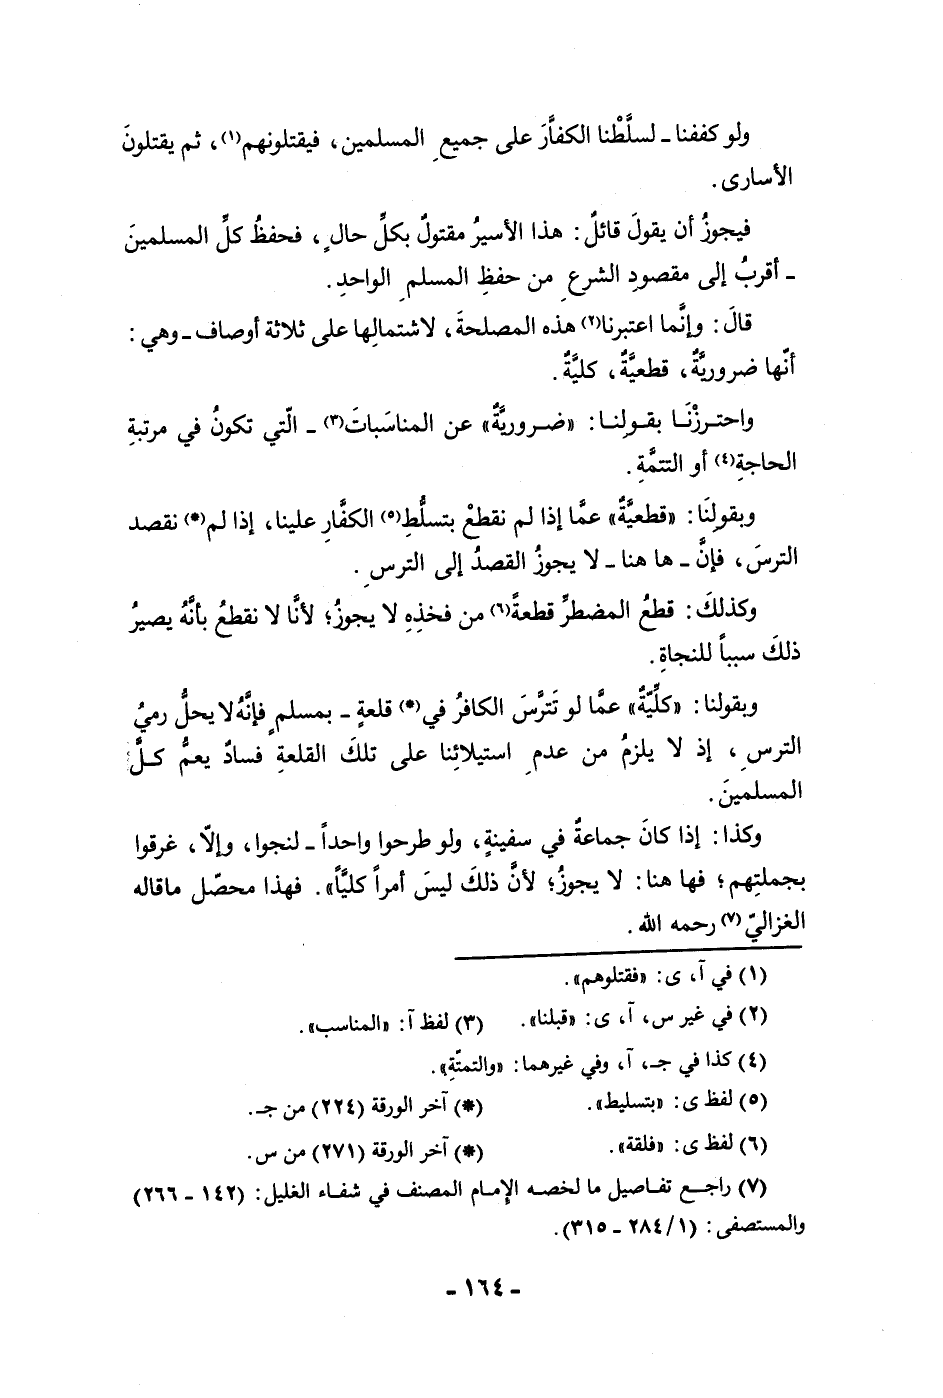 ولو كففنا ـ لسلَّطْنا الكفَّارَ على جميعِ المسلمين، فيقتلونهم(١)، ثم يقتلونَ
الأسارى.
فيجوزُ أن يقولَ قائلٌ: هذا الأسيرُ مقتولٌ بكلِّ حالٍ، فحفظُ كلِّ المسلمينَ
ـ أقربُ إلى مقصودِ الشرعِ من حفظِ المسلمِ الواحدِ.
قالَ: وإنَّما اعتبرنا(٢) هذه المصلحةَ، لاشتمالِها على ثلاثة أوصاف ـ وهي:
أنّها ضروريَّةٌ، قطعيَّةٌ، كليَّةٌ.
واحترزْنَا بقولِنا: «ضروريَّةٌ» عن المناسَباتَ(٣) ـ الّتي تكونُ في مرتبةِ
الحاجةِ(٤) أو التتمَّةِ.
وبقولِنَا: «قطعيَّةٌ» عمَّا إذا لم نقطعْ بتسلُّطِ(٥) الكفَّارِ علينا، إذا لم(*) نقصد
الترسَ، فإنَّ ـ ها هنا ـ لا يجوزُ القصدُ إلى الترسِ.
وكذلكَ: قطعُ المضطرِّ قطعةً(٦) من فخذِهِ لا يجوزُ؛ لأنَّا لا نقطعُ بأنَّهُ يصيرُ
ذلكَ سبباً للنجاةِ.
وبقولنا: «كلِّيّةٌ» عمَّا لو تَترَّسَ الكافرُ في(*) قلعةٍ ـ بمسلمٍ فإنَّهُ لا يحلُّ رميُ
الترسِ، إذ لا يلزمُ من عدمِ استيلائِنا على تلكَ القلعةِ فسادٌ يعمُّ كلَّ
المسلمينَ.
وكذا: إذا كانَ جماعةٌ في سفينةٍ، ولو طرحوا واحداً ـ لنجوا، وإلّا، غرقوا
بجملتِهم؛ فها هنا: لا يجوزُ؛ لأنَّ ذلكَ ليسَ أمراً كليَّاً». فهذا محصّل ماقاله
الغزاليّ(٧) رحمه الله.
(١) في آ، ى: «فقتلوهم».
(٢) في غير س، آ، ى: «قبلنا». (٣) لفظ آ: «المناسب».
(٤) كذا في جـ، آ، وفي غيرهما: «والتمتّةِ».
(٥) لفظ ى: «بتسليط». (*) آخر الورقة (٢٢٤) من جـ.
(٦) لفظ ى: «فلقة». (*) آخر الورقة (٢٧١) من س.
(٧) راجع تفاصيل ما لخصه الإمام المصنف في شفاء الغليل: (١٤٢ ـ ٢٦٦)
والمستصفى: (٢٨٤/١ ـ ٣١٥).
ـ ١٦٤ ـ